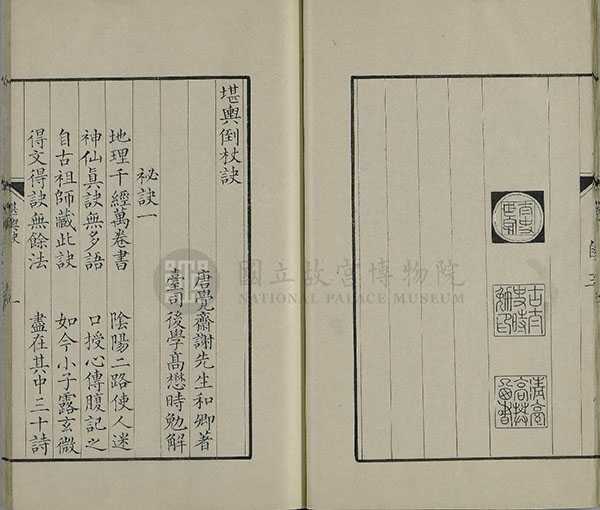 堪輿倒杖訣
唐覺齋謝先生和卿著
臺司後學高懋時勉解
祕訣一
地理千經萬卷書 陰陽二路使人迷
神仙眞訣無多語 口授心傳腹記之
自古祖師藏此訣 如今小子露玄微
得文得訣無餘法 盡在其中三十詩
國立故宮博物院
NATIONAL PALACE MUSEUM